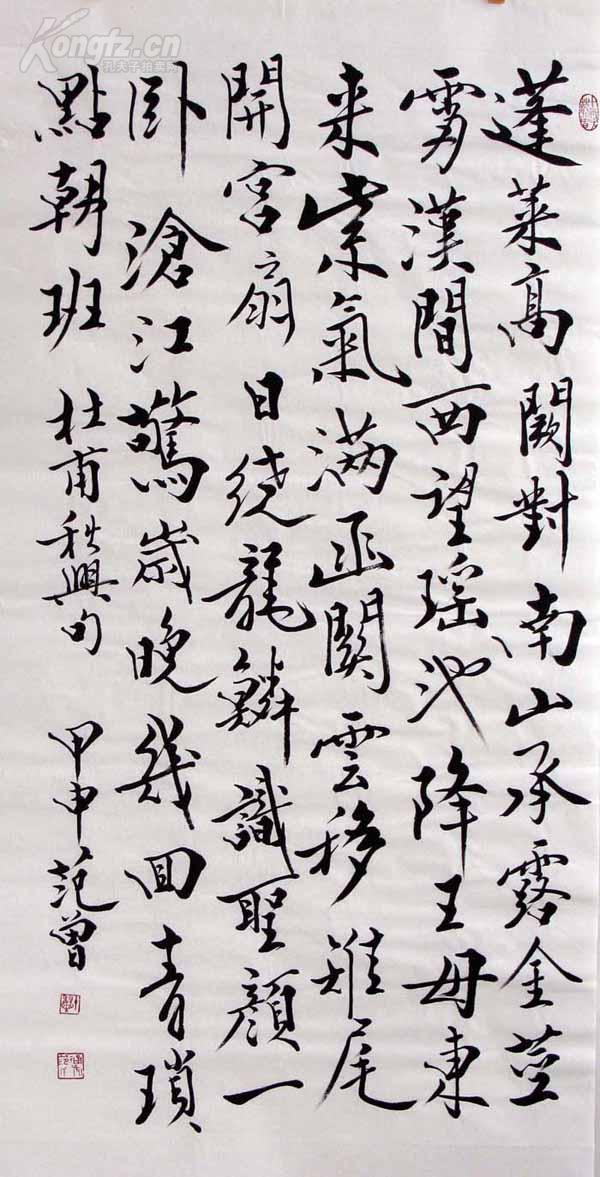 蓬萊高闕對南山承露金莖
霄漢間西望瑶池降王母東
来紫氣满函関雲移雉尾
開宮扇日绕龍鱗識聖顔一
卧滄江驚歲晚幾回青瑣
點朝班 杜甫秋興句 甲申范曾
Kongfz.cn
孔夫子拍卖网